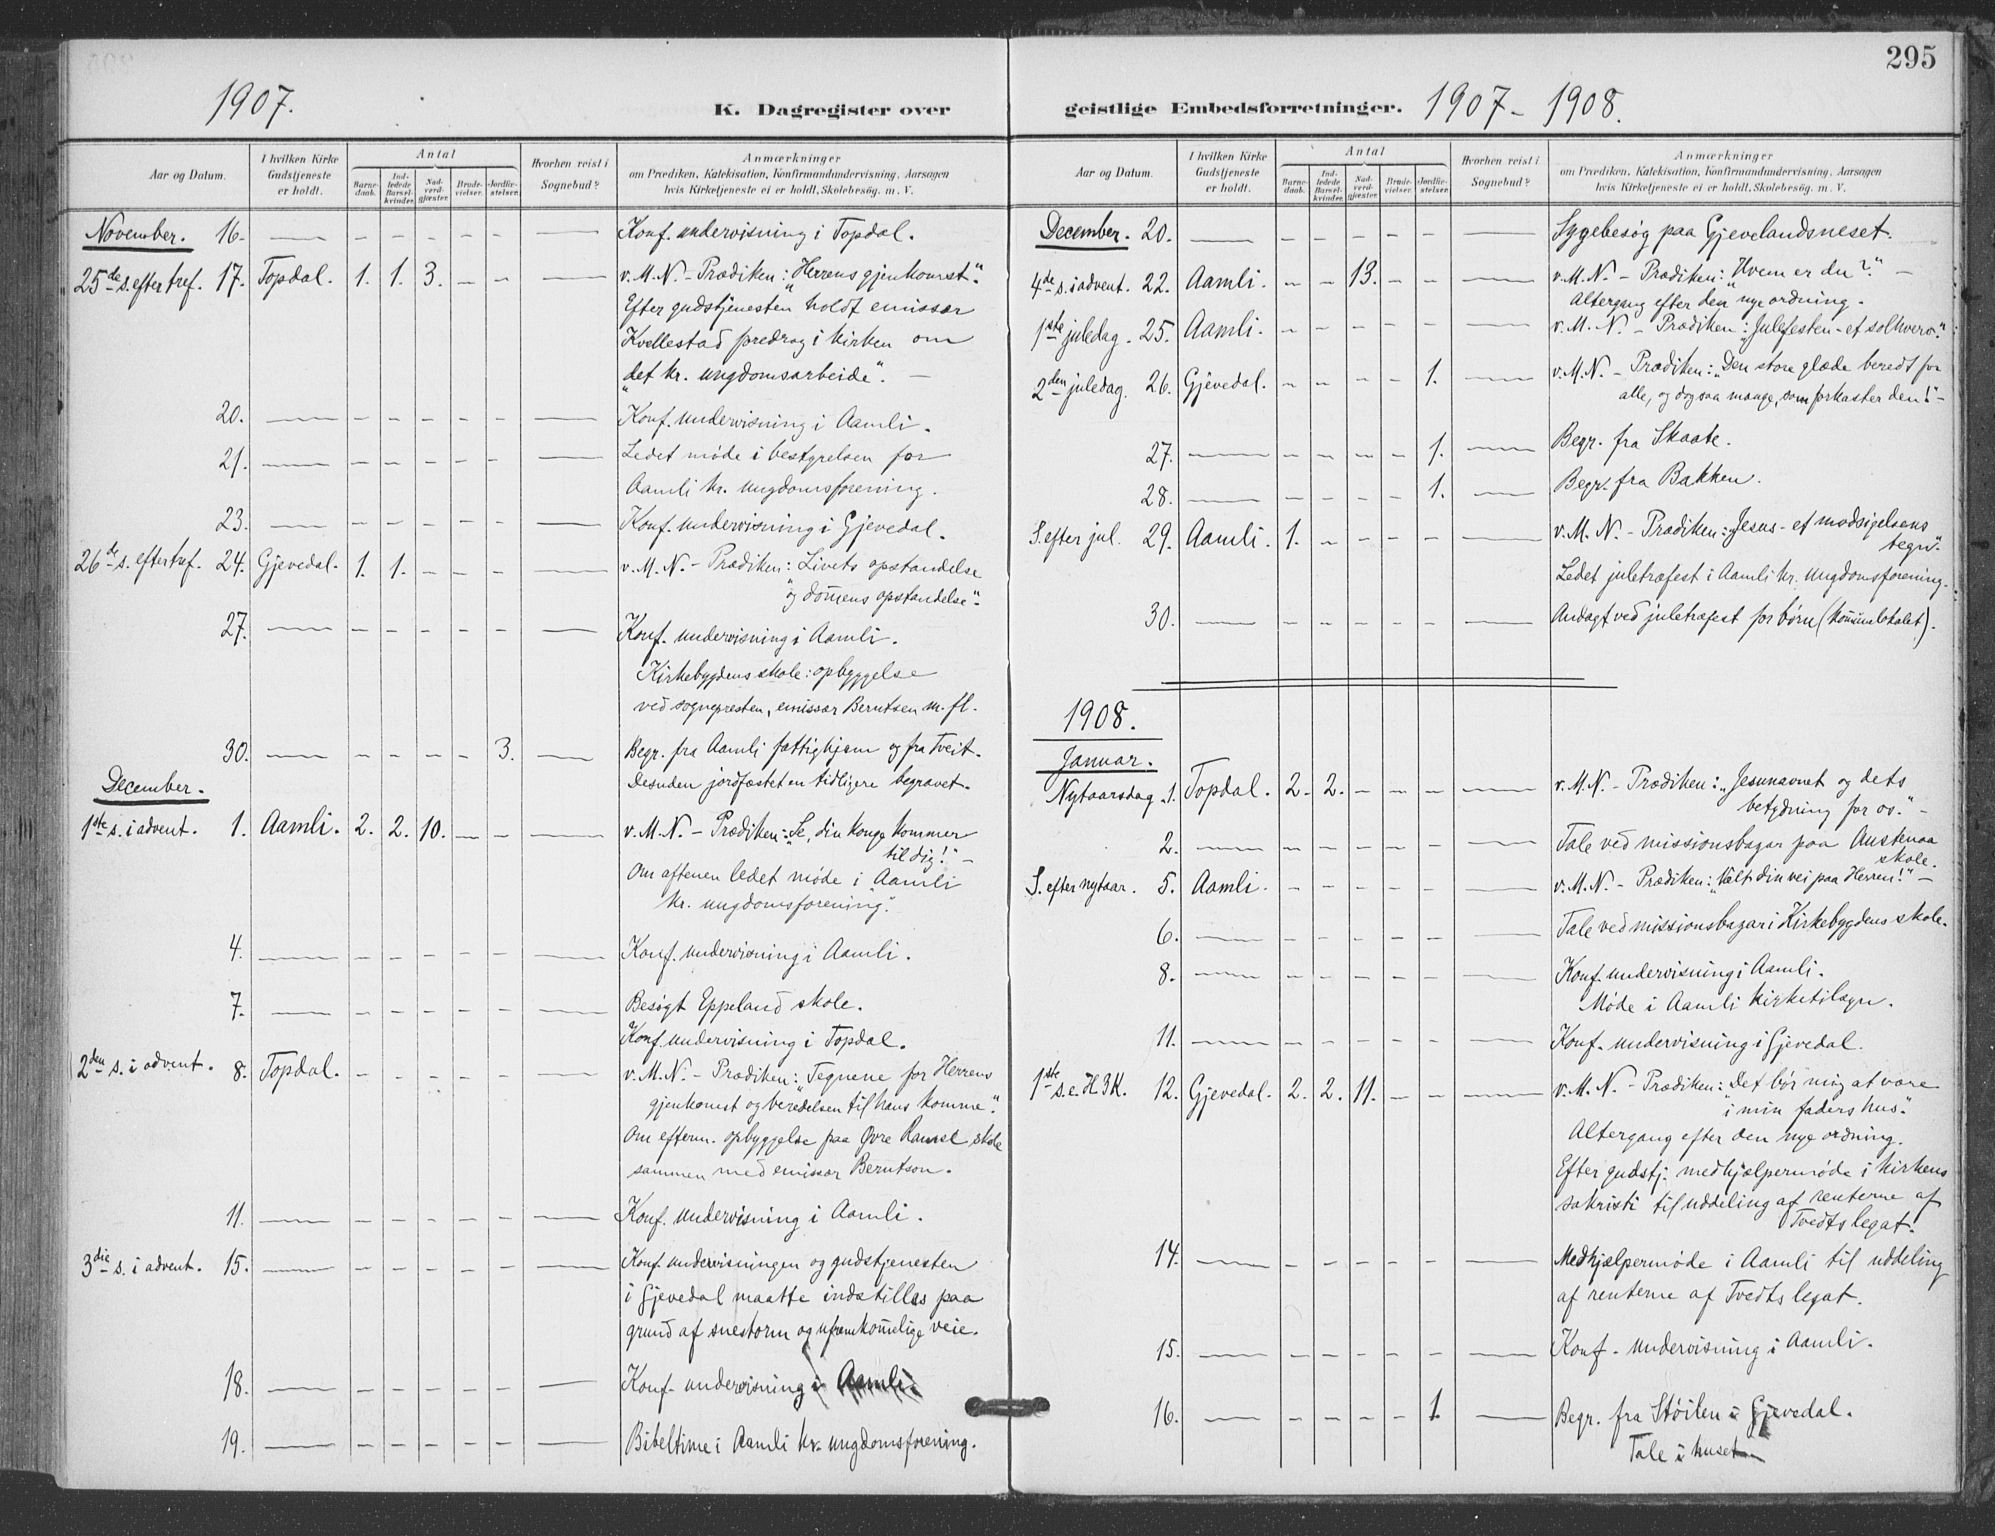 1907.
K. Dagregister over
Aar og Datum.
I hvilken Kirke Gudstjeneste er holdt.
Antal
Barnedaab.
Indledede Barselkvinder.
Nadverdgjæster.
Brudevielser.
Jordfæstelser.
Hvorhen reist i Sognebud?
Anmærkninger
om Prædiken, Katekisation, Konfirmandundervisning, Aarsagen
hvis Kirketjeneste ei er holdt, Skolebesøg. m. V.
November. 16. — – – – – – — Konf. undervisning i Topdal.
25de s. efter tref. 17. Topdal. 1. 1. 3. – – — v. M. N. – Prædiken: „Herrens gjenkomst“.
Efter gudstjenesten holdt emissær
Kvellestad foredrag i kirken om
„det kr. ungdomsarbeide“. —
20. — – – – – – — Konf. undervisning i Aamli.
21. — – – – – – — Ledet møde i bestyrelsen for
Aamli kr. ungdomsforening.
23. — – – – – – — Konf. undervisning i Gjevedal.
26de s. efter tref. 24. Gjevedal. 1. 1. – – – — v. M. N. – Prædiken: „Livets opstandelse
og dom̄ens opstandelse“.
27. — – – – – – — Konf. undervisning i Aamli.
Kirkebygdens skole: opbyggelse
ved sognepresten, emissær Berntsen m. fl.
30. — – – – – 3. — Begr. fra Aamli fattighjem og fra Tveit.
Desuden jordfæstet en tidligere begravet.
December.
1ste s. i advent. 1. Aamli. 2. 2. 10. – – — v. M. N. – Prædiken: „Se, din konge kommer
til dig!“ –
Om aftenen ledet møde i „Aamli
kr. ungdomsforening“.
4. — – – – – – — Konf. undervisning i Aamli.
7. — – – – – – — Besøgt Eppeland skole.
Konf. undervisning i Topdal.
2den s. i advent. 8. Topdal. – – – – – — v. M. N. – Prædiken: „Tegnene for Herrens
gjenkomst og beredelsen til hans komme“.
Om efterm. opbyggelse paa Øvre Ramse skole
sammen med emissær Berntson.
11. — – – – – – — Konf. undervisning i Aamli.
3die s. i advent. 15. — – – – – – — Konf. undervisningen og gudstjenesten
i Gjevedal maatte indstilles paa
grund af snestorm og ufremkom̄elige veie.
18. — – – – – – — Konf. undervisning i Aamli.
19. — – – – – – — Bibeltime i Aamli kr. ungdomsforening.
295
geistlige Embedsforretninger.
1907 – 1908.
Aar og Datum.
I hvilken Kirke Gudstjeneste er holdt.
Antal
Barnedaab.
Indledede Barselkvinder.
Nadverdgjæster.
Brudevielser.
Jordfæstelser.
Hvorhen reist i Sognebud?
Anmærkninger
om Prædiken, Katekisation, Konfirmandundervisning, Aarsagen
hvis Kirketjeneste ei er holdt, Skolebesøg. m. V.
December. 20. — – – – – – — Sygebesøg paa Gjevelandsneset.
4de s. i advent. 22. Aamli. – – 13. – – — v. M. N. – Prædiken: „Hvem er du?“ –
Altergang efter den nye ordning.
1ste juledag. 25. Aamli. – – – – – — v. M. N. – Prædiken: „Julefesten – et solhverv“.
2den juledag. 26. Gjevedal. – – – – 1. — v. M. N. – Prædiken: „Den store glæde beredt for
alle, og dog saa mange, som forkaster den!“ –
27. — – – – – 1. — Begr. fra Skaate.
28. — – – – – 1. — Begr. fra Bakken.
S. efter jul. 29. Aamli. 1. – – – – — v. M. N. – Prædiken: „Jesus – et modsigelsens
tegn“.
Ledet juletræfest i Aamli kr. ungdomsforening.
30. — – – – – – — Andagt ved juletræfest for børn (kom̄unelokalet).
1908.
Januar.
Nytaarsdag. 1. Topdal. 2. 2. – – – — v. M. N. – Prædiken: „Jesunavnet og dets
betydning for os“. –
2. — – – – – – — Tale ved missionsbazar paa Austenaa
skole.
S. efter nytaar. 5. Aamli. – – – – – — v. M. N. – Prædiken: „Vælt din vei paa Herren!“ –
6. — – – – – – — Tale ved missionsbazar i Kirkebygdens skole.
8. — – – – – – — Konf. undervisning i Aamli.
Møde i Aamli kirketilsyn.
11. — – – – – – — Konf. undervisning i Gjevedal.
1ste s. e. H3K. 12. Gjevedal. 2. 2. 11. – – — v. M. N. – Prædiken: „Det bør mig at være
i min faders hus“.
Altergang efter den nye ordning.
Efter gudstj. medhjælpermøde i kirkens
sakristi til uddeling af renterne af
Tvedts legat.
14. — – – – – – — Medhjælpermøde i Aamli til uddeling
af renterne af Tvedts legat.
15. — – – – – – — Konf. undervisning i Aamli.
16. — – – – – 1. — Begr. fra Støilen i Gjevedal.
Tale i huset